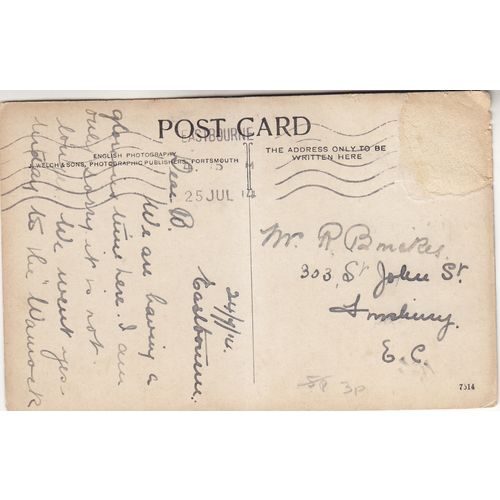 POST CARD
ENGLISH PHOTOGRAPHY
J. WELCH & SONS, PHOTOGRAPHIC PUBLISHERS, PORTSMOUTH
THE ADDRESS ONLY TO BE
WRITTEN HERE
EASTBOURNE
25 JUL 14
24/7/14.
Eastbourne.
Dear B
We are having a
glorious time here. I am
only sorry it is not
longer. We went yes-
terday to the
Mr R
303 St John St.
E.C.
3p
7514